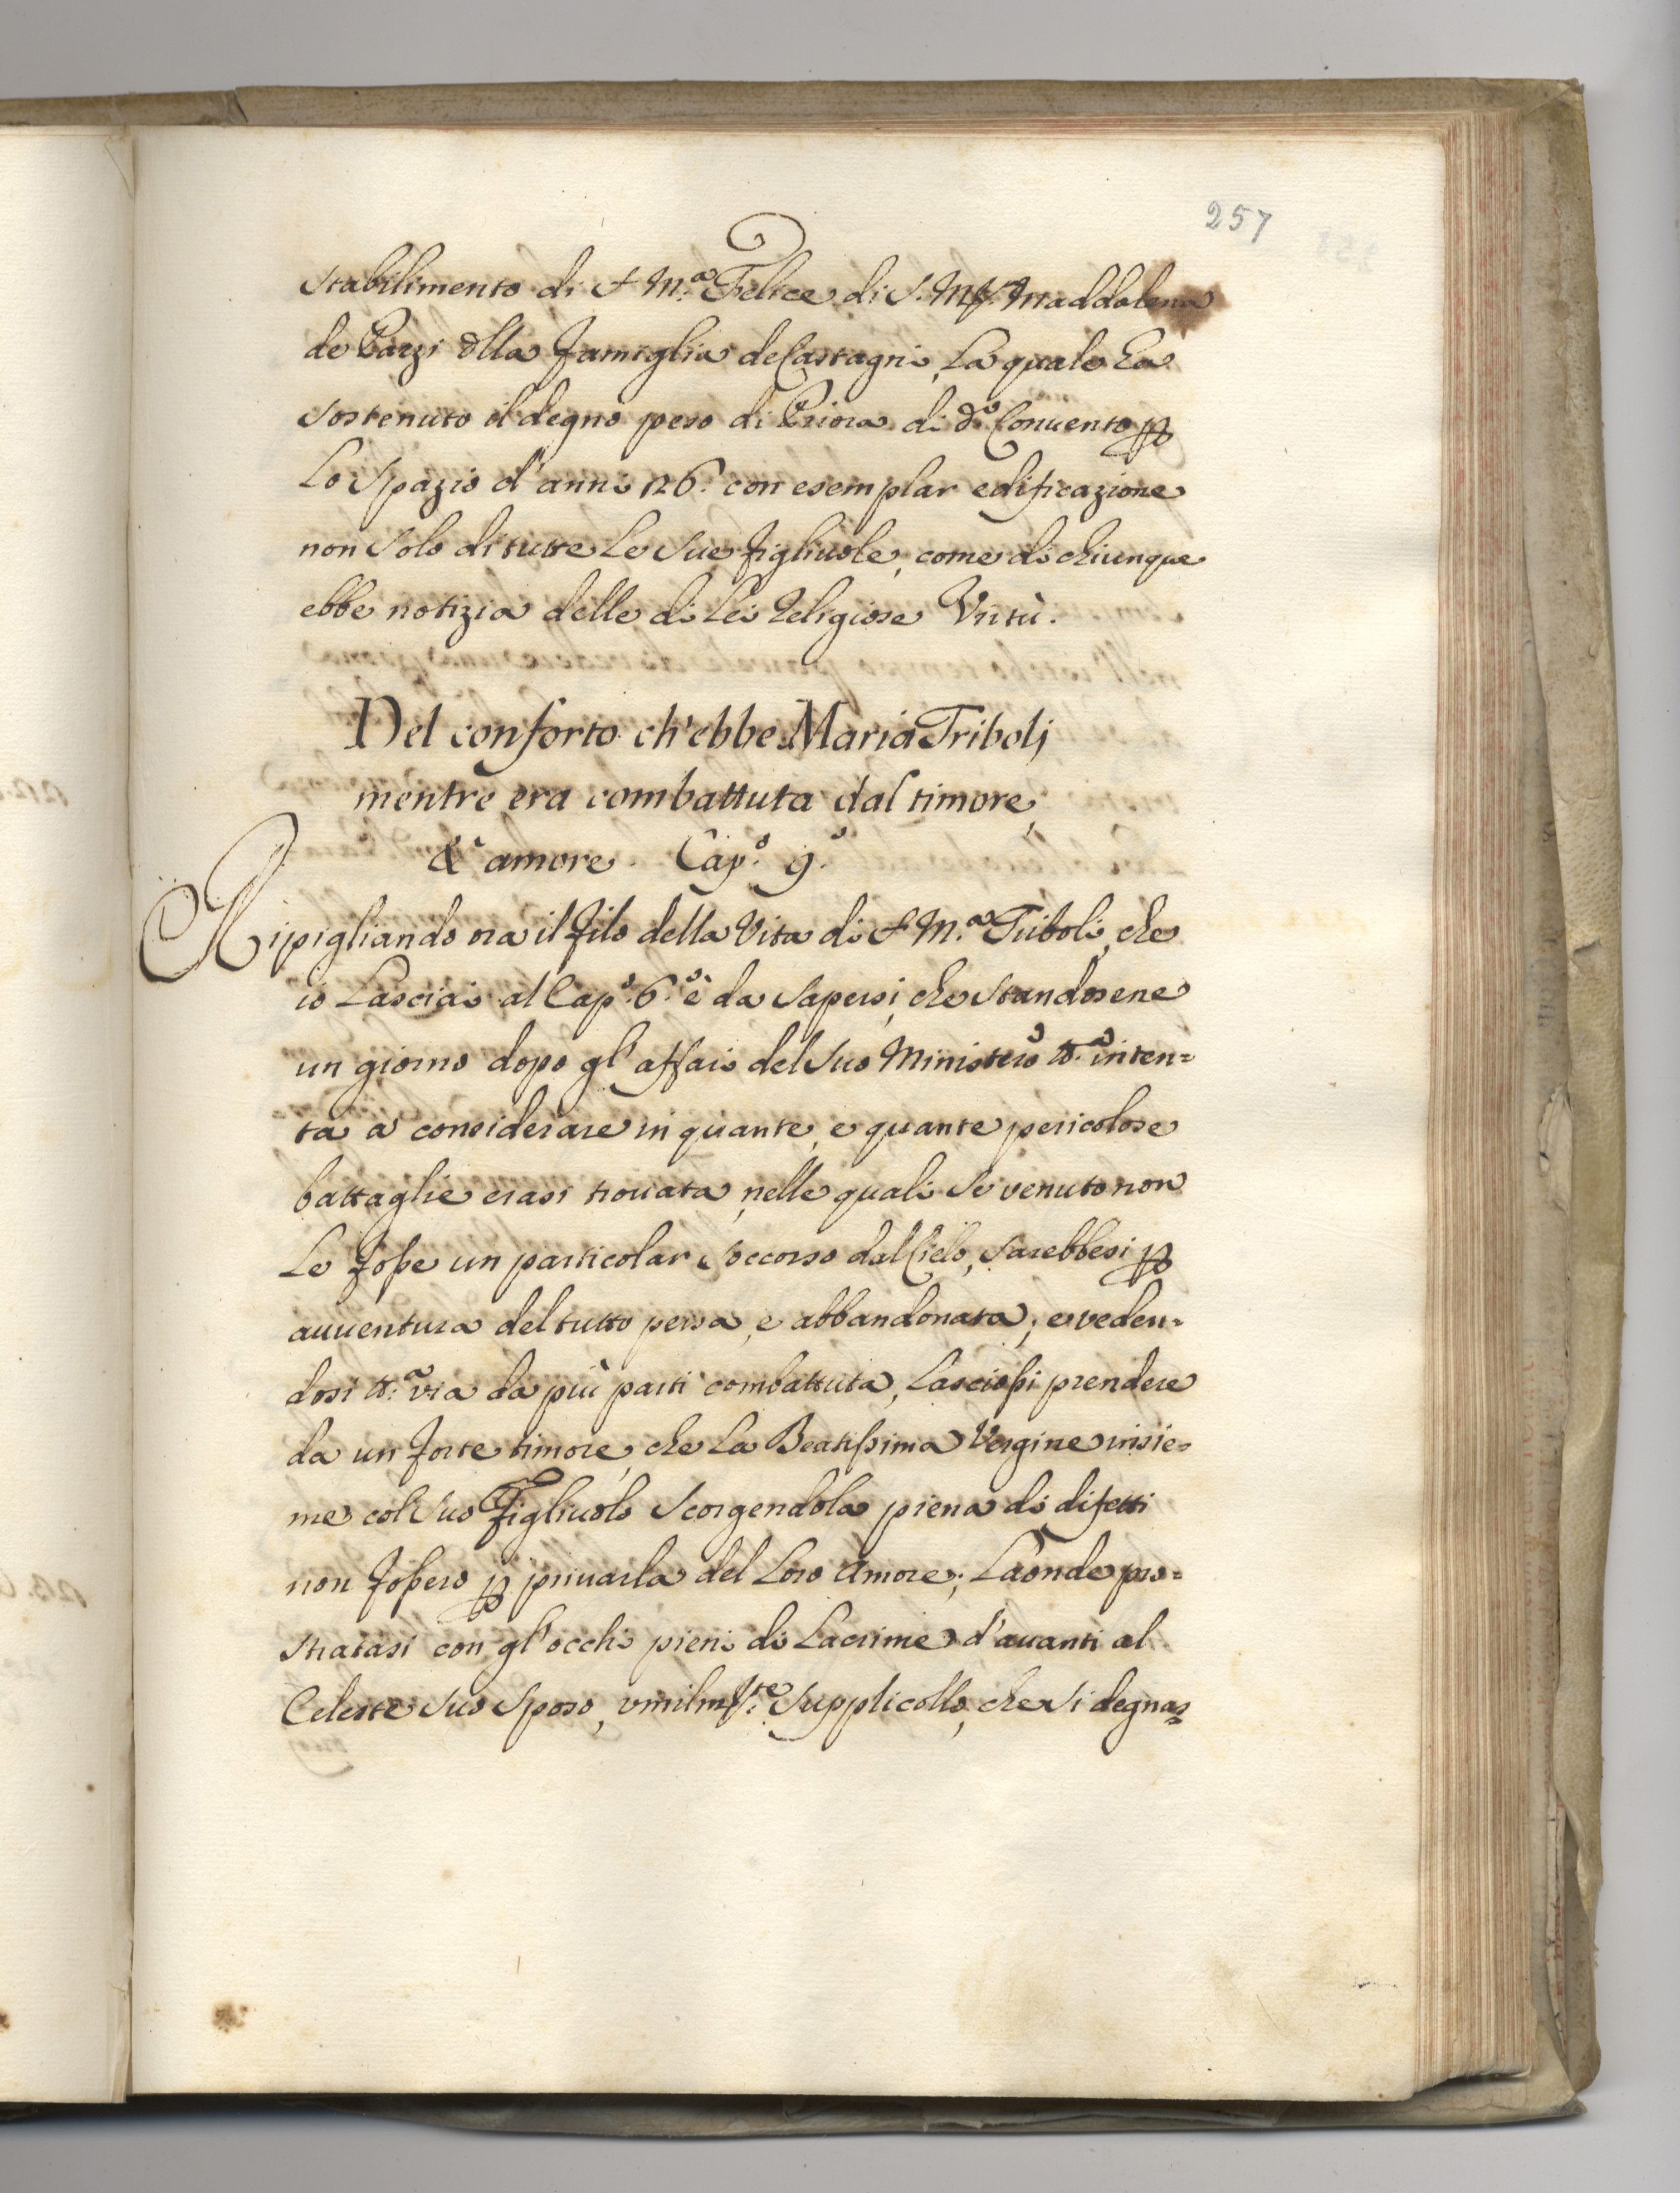 257
stabilimento di S. M.ª Felice di S. M.ª Maddalena
de Pazzi dlla famiglia de Castagni, La quale ha
sostenuto il degno peso di Priora di d.º Conuento p
Lo Spazio d'anni 26. con esemplar edificazione
non Solo di tutte Le Sue figliuole, come di chiunque
ebbe notizia delle di Lei Religiose Virtù.
Del conforto ch'ebbe Maria Tribolj
mentre era combattuta dal timore,
& amore. Cap.º 9.º
Ripigliando ora il filo della Vita di S. M.ª Triboli, che
io Lasciai al Cap.º 6.º è da Sapersi, che Standosene
un giorno dopo gl'affari del Suo Ministero tt.ª inten=
ta a considerare in quante, e quante pericolose
battaglie erasi trouata, nelle quali Se venuto non
Le foße un particolar Soccorso dal Cielo, Sarebbesi p
auuentura del tutto persa, e abbandonata; e veden=
dosi tt.ª via da più parti combattuta, Lascioßi prendere
da un forte timore, che La Beatißima Vergine insie=
me col Suo Figliuolo Scorgendola piena di difetti
non foßero p priuarla del Loro Amore; Laonde pro=
stratasi con gl'occhi pieni di Lacrime d'auanti al
Celeste Suo Sposo, vmilm.te Supplicollo, che Si degnas=